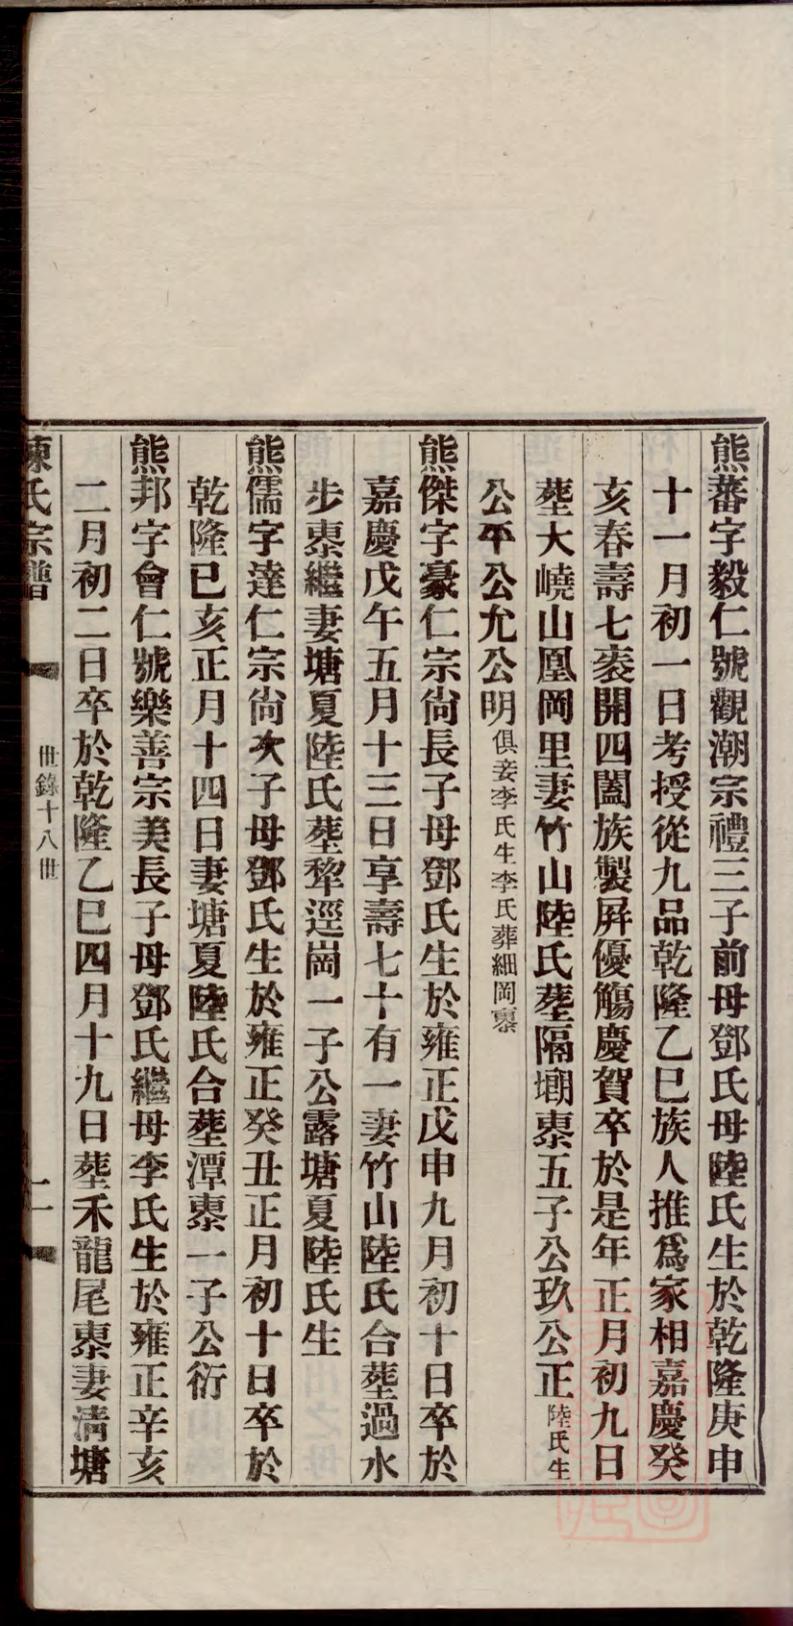 熊蕃字毅仁號觀潮宗禮三子前母鄧氏母陸氏生於乾隆庚申
十一月初一日考授從九品乾隆乙巳族人推爲家相嘉慶癸
亥春壽七袠開四闔族製屏優觴慶賀卒於是年正月初九日
塟大嶢山凰岡里妻竹山陸氏塟隔塱㙇五子公玖公正陸氏生
公平公允公明俱妾李氏生李氏葬細岡㙇
熊傑字豪仁宗尙長子母鄧氏生於雍正戊申九月初十日卒於
嘉慶戊午五月十三日享壽七十有一妻竹山陸氏合塟過水
步㙇繼妻塘夏陸氏塟犂逕崗一子公露塘夏陸氏生
熊儒字達仁宗尙次子母鄧氏生於雍正癸丑正月初十日卒於
乾隆已亥正月十四日妻塘夏陸氏合塟潭㙇一子公衍
熊邦字會仁號樂善宗美長子母鄧氏繼母李氏生於雍正辛亥
二月初二日卒於乾隆乙巳四月十九日塟禾龍尾㙇妻清塘
陳氏宗譜 世錄十八世 二